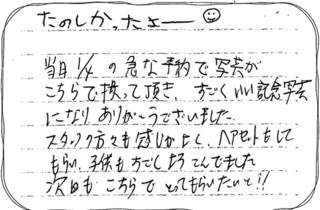 たのしかったよー
当日 1/4 の急な予約で写真が
こちらで撮って頂き、すごくいい記念写真
になり ありがとうございました。
スタッフ方々も感じがよく、ヘアセットもして
もらい、子供もすごくよろこんでました
次回も こちらで とってもらいたいと!!